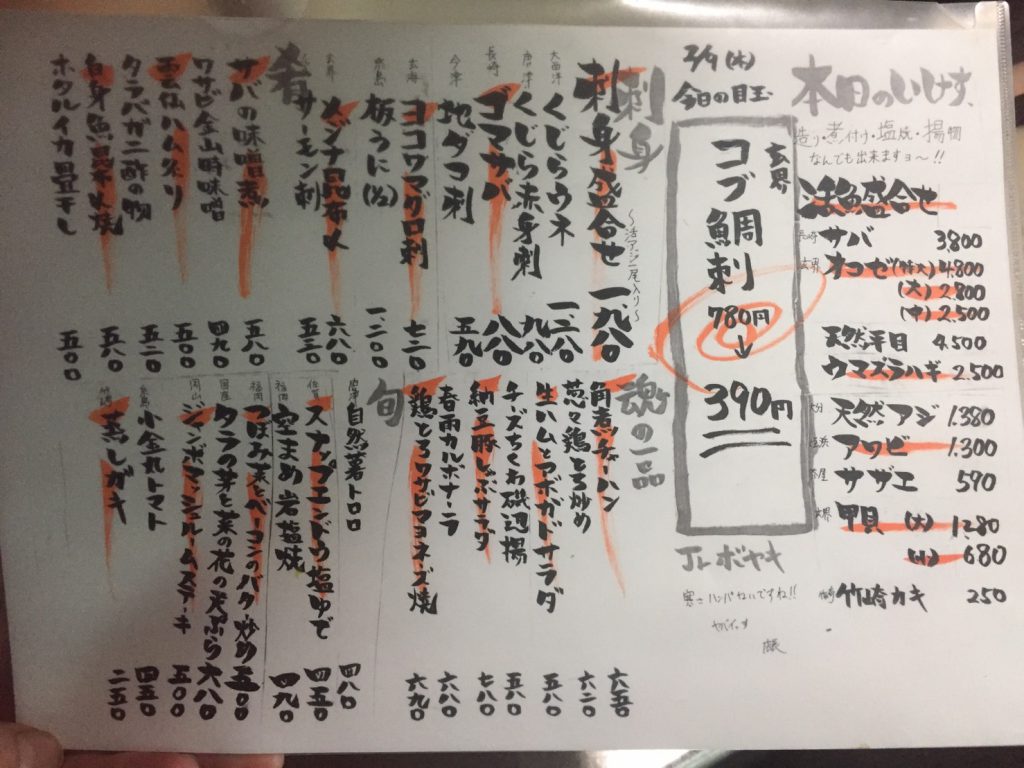 本日のいけす
造り・煮付け・塩焼・揚物
なんでも出来ますョ〜!!
活魚盛合せ
長崎 サバ 3,800
玄界 オコゼ(特大) 4,800
(大) 2,800
(中) 2,500
天然平目 4,500
ウマズラハギ 2,500
大分 天然アジ 1,380
アワビ 1,300
サザエ 590
玄界 甲貝 (大) 1,280
(小) 680
竹崎カキ 250
2/9(木)
今日の目玉
玄界
コブ鯛刺
780円
↓
390円
Jr.ボヤキ
寒さハンパないですね!!
ヤバイっす
刺身
刺身盛合せ 一、九八〇
〜活アジ一尾入り〜
大西洋 くじらウネ 一、二八〇
唐津 くじら赤身刺 九八〇
長崎 ゴマサバ 八八〇
今津 地ダコ刺 五九〇
玄海 ヨコワマグロ刺 七二〇
糸島 板うに(½) 一、二〇〇
玄界 メジナ昆布〆 六八〇
サーモン刺 五三〇
肴
サバの味噌煮 五八〇
ワサビ金山時味噌 四九〇
雲仙ハム炙り 五〇〇
タラバガニ酢の物 五二〇
白身魚昆布〆焼 五八〇
ホタルイカ畳干し 五〇〇
魂の一品
角煮チャーハン 六五〇
葱々鶏とろ炒め 六二〇
生ハムとアボガドサラダ 五八〇
チーズちくわ磯辺揚 五八〇
納豆豚しゃぶサラダ 七八〇
春雨カルボナーラ 六八〇
鶏とろワサビマヨネーズ焼 六九〇
旬
唐津 自然薯トロロ 四八〇
佐賀 スナップエンドウ塩ゆで 四五〇
福岡 空まめ岩塩焼 四九〇
福岡 つぼみ菜とベーコンのバタ炒め 五〇〇
国産 タラの芽と菜の花の天ぷら 六八〇
岡山 ジャンボマッシュルームステーキ 五〇〇
糸島 小金丸トマト 四五〇
竹崎 蒸しガキ 二五〇